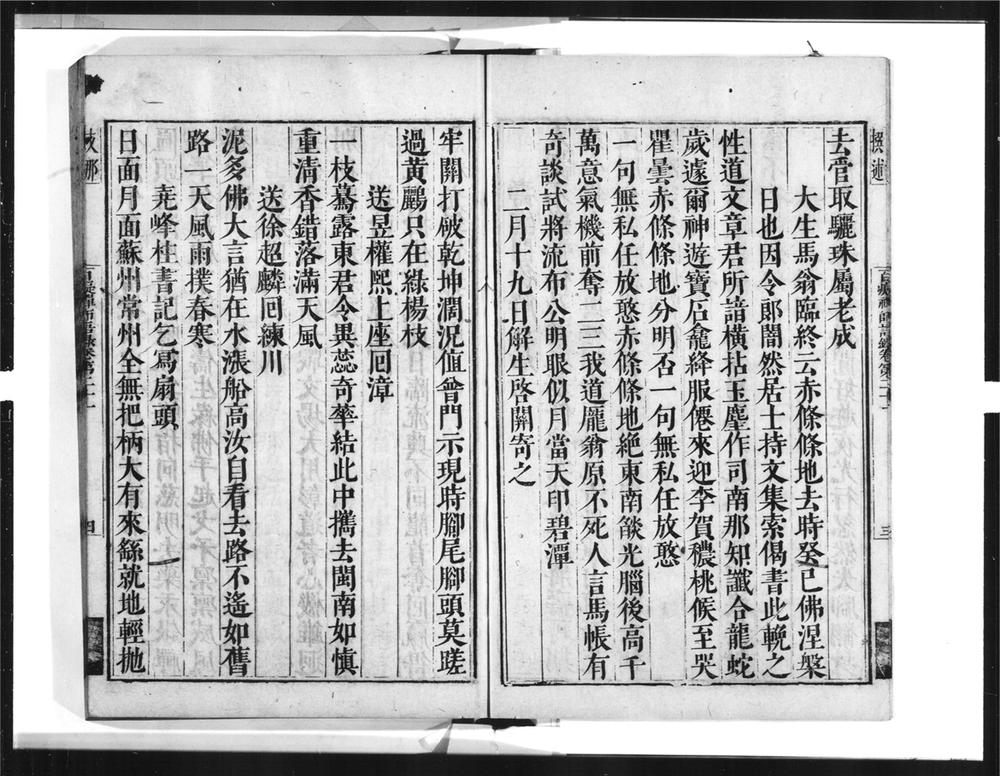 去管取驪珠屬老成
大生馬翁臨終云赤條條地去時癸巳佛涅槃
日也因令郎闇然居士持文集索偈書此輓之
性道文章君所諳橫拈玉麈作司南那知讖合龍蛇
歲遽爾神遊寶石龕絳服僊來迎李賀穠桃候至哭
瞿曇赤條條地分明否一句無私任放憨
一句無私任放憨赤條條地絶東南燄光腦後高千
萬意氣機前奪二三我道龐翁原不死人言馬帳有
奇談試將流布公明眼似月當天印碧潭
二月十九日解生啓關寄之
牢關打破乾坤濶況值曾門示現時腳尾腳頭莫蹉
過黃鸝只在綠楊枝
送昱權熙上座回漳
一枝驀露東君令異蕊奇華結此中攜去閩南如慎
重清香錯落滿天風
送徐超麟回練川
泥多佛大言猶在水漲船高汝自看去路不遙如舊
路一天風雨撲春寒
堯峰桂書記乞寫扇頭
日面月面蘇州常州全無把柄大有來繇就地輕抛
三
四